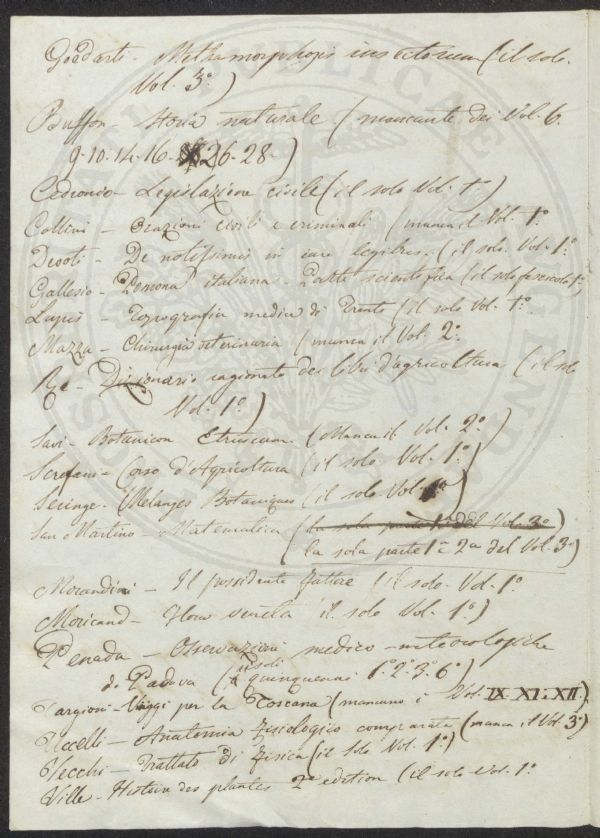 Goedarti - Methamorphosis insectorum (il solo
Vol. 3°)
Buffon - Storia naturale (mancante dei Vol. 6
9-10-14-16- 26-28)
Cedronio - Legislazione civile (il solo Vol. 1°)
Collini - Orazioni civili e criminali (manca il Vol. 1°
Devoti - De notissimis in iure legibus (il solo Vol. 1°
Gallesio - Pomona italiana - Parte scientifica (il solo fascicolo 1°)
Lupis - Topografia medica di Trento (il solo Vol. 1°
Mazza - Chirurgia veterinaria (manca il Vol. 2°
Re - Dizionario ragionato dei libri d'agricoltura (il solo
Vol. 1°)
Savi - Botanicon Etruscum (Manca il Vol. 2°
Serafani - Corso d'Agricoltura (il solo Vol. 1°)
Seringe - Melanges Botaniques (il solo Vol.
San Martino - Matematica (la sola parte 1ª del Vol. 3°)
(la sola parte 1ª e 2da del Vol. 3°)
Morandini - Il possidente fattore (il solo Vol. 1°
Moricand - Flora veneta (il solo Vol. 1°)
Penada - Osservazioni medico-meteorologiche
di Padova (i soli quinquenni 1° 2° 3° 6°)
Targioni - Viaggi per la Toscana (mancano i Vol. IX XI. XII)
Uccelli - Anatomia fisiologico comparata (manca il Vol. 3°)
Vecchi - Trattato di Fisica (il solo Vol. 1°)
Ville - Histoire des plantes 2° edition (il solo Vol. 1°